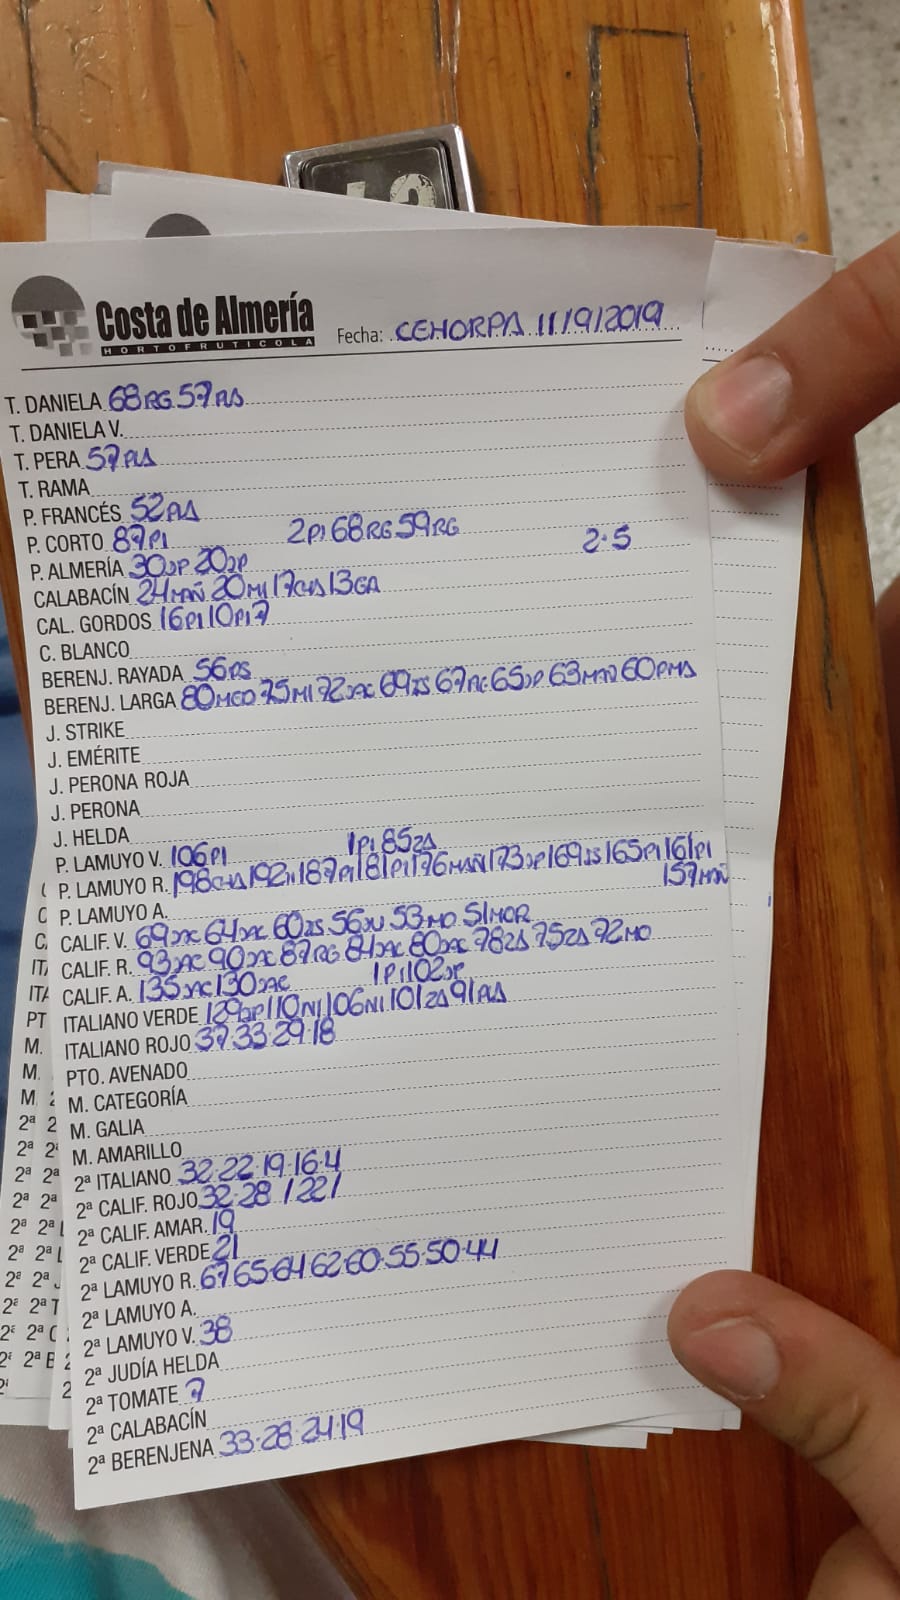 Costa de Almería
HORTOFRUTICOLA
Fecha: CEHORPA 11/9/2019
T. DANIELA 68RG 57PLA
T. DANIELA V.
T. PERA 57PLA
T. RAMA
P. FRANCÉS 52PLA
P. CORTO 87PI 2PI 68RG 59RG
P. ALMERÍA 30JP 20JP 2·5
CALABACÍN 24MAÑ 20MI 17CHA 13GA
CAL. GORDOS 16PI 10PI 7
C. BLANCO
BERENJ. RAYADA 56PS
BERENJ. LARGA 80MCO 75MI 72JAC 69JS 67AC 65JP 63MAÑ 60PMA
J. STRIKE
J. EMÉRITE
J. PERONA ROJA
J. PERONA
J. HELDA
P. LAMUYO V. 106PI 1PI 85ZA
P. LAMUYO R. 198CHA 192 187PI 181PI 176MAÑ 173JP 169JS 165PI 161PI
157MAÑ
P. LAMUYO A.
CALIF. V. 69JAC 64JAC 60JS 56JU 53MO 51MOR
CALIF. R. 93JAC 90JAC 87RG 84JAC 80JAC 78ZA 75ZA 72MO
CALIF. A. 135JAC 130JAC 1PI 102JP
ITALIANO VERDE 129JP 110NI 106NI 101ZA 91PLA
ITALIANO ROJO 37·33·29·18
PTO. AVENADO
M. CATEGORÍA
M. GALIA
M. AMARILLO
2ª ITALIANO 32·22·19·16·4
2ª CALIF. ROJO 32·28 /22/
2ª CALIF. AMAR. 19
2ª CALIF. VERDE 21
2ª LAMUYO R. 67·65·64·62·60·55·50·44
2ª LAMUYO A.
2ª LAMUYO V. 38
2ª JUDÍA HELDA
2ª TOMATE 7
2ª CALABACÍN
2ª BERENJENA 33·28·24·19